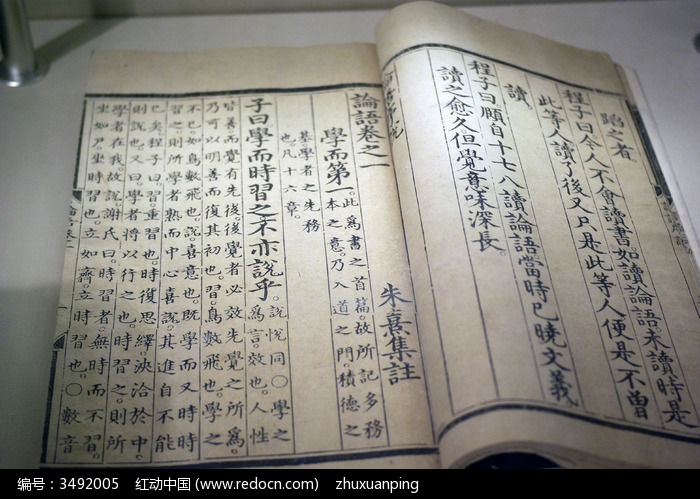 蹈之者
程子曰今人不會讀書。如讀論語未讀時是
此等人讀了後又只是此等人便是不曾
讀
程子曰頤自十七八讀論語當時已曉文義
讀之愈久但覺意味深長。
論語卷之一
朱熹集註
學而第一
此爲書之首篇。故所記多務
本之意。乃入道之門。積德之
基。學者之先務
也。凡十六章。
子曰學而時習之不亦說乎。
說悅同。○學之
爲言。效也。人性
皆善。而覺有先後。後覺者必效先覺之所爲。
乃可以明善而復其初也。習鳥數飛也。學之
不已。如鳥數飛也。說喜意也。既學而又時時
習之。則所學者熟。而中心喜說。其進自不能
已矣。程子曰。習重習也。時復思繹。浹洽於中。
則說也。又曰。學者將以行之也。時習之。則所
學者在我。故說。謝氏曰。時習者。無時而不習。
坐如尸。坐時習也。立如齊。立時習也。○數音
编号：3492005 红动中国 (www.redocn.com) zhuxuanping